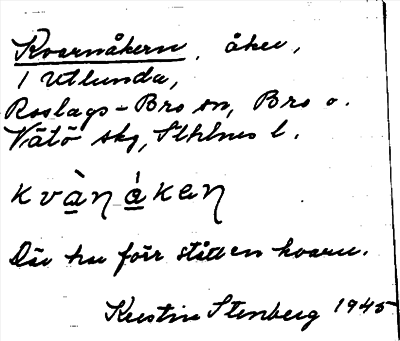 Kvarnåkern, åker,
1 Utlunda,
Roslags-Bro sn, Bro o.
Vätö skg, Sthlms l.
kvàn ákan
Där har förr stått en kvarn.
Kerstin Stenberg 1945